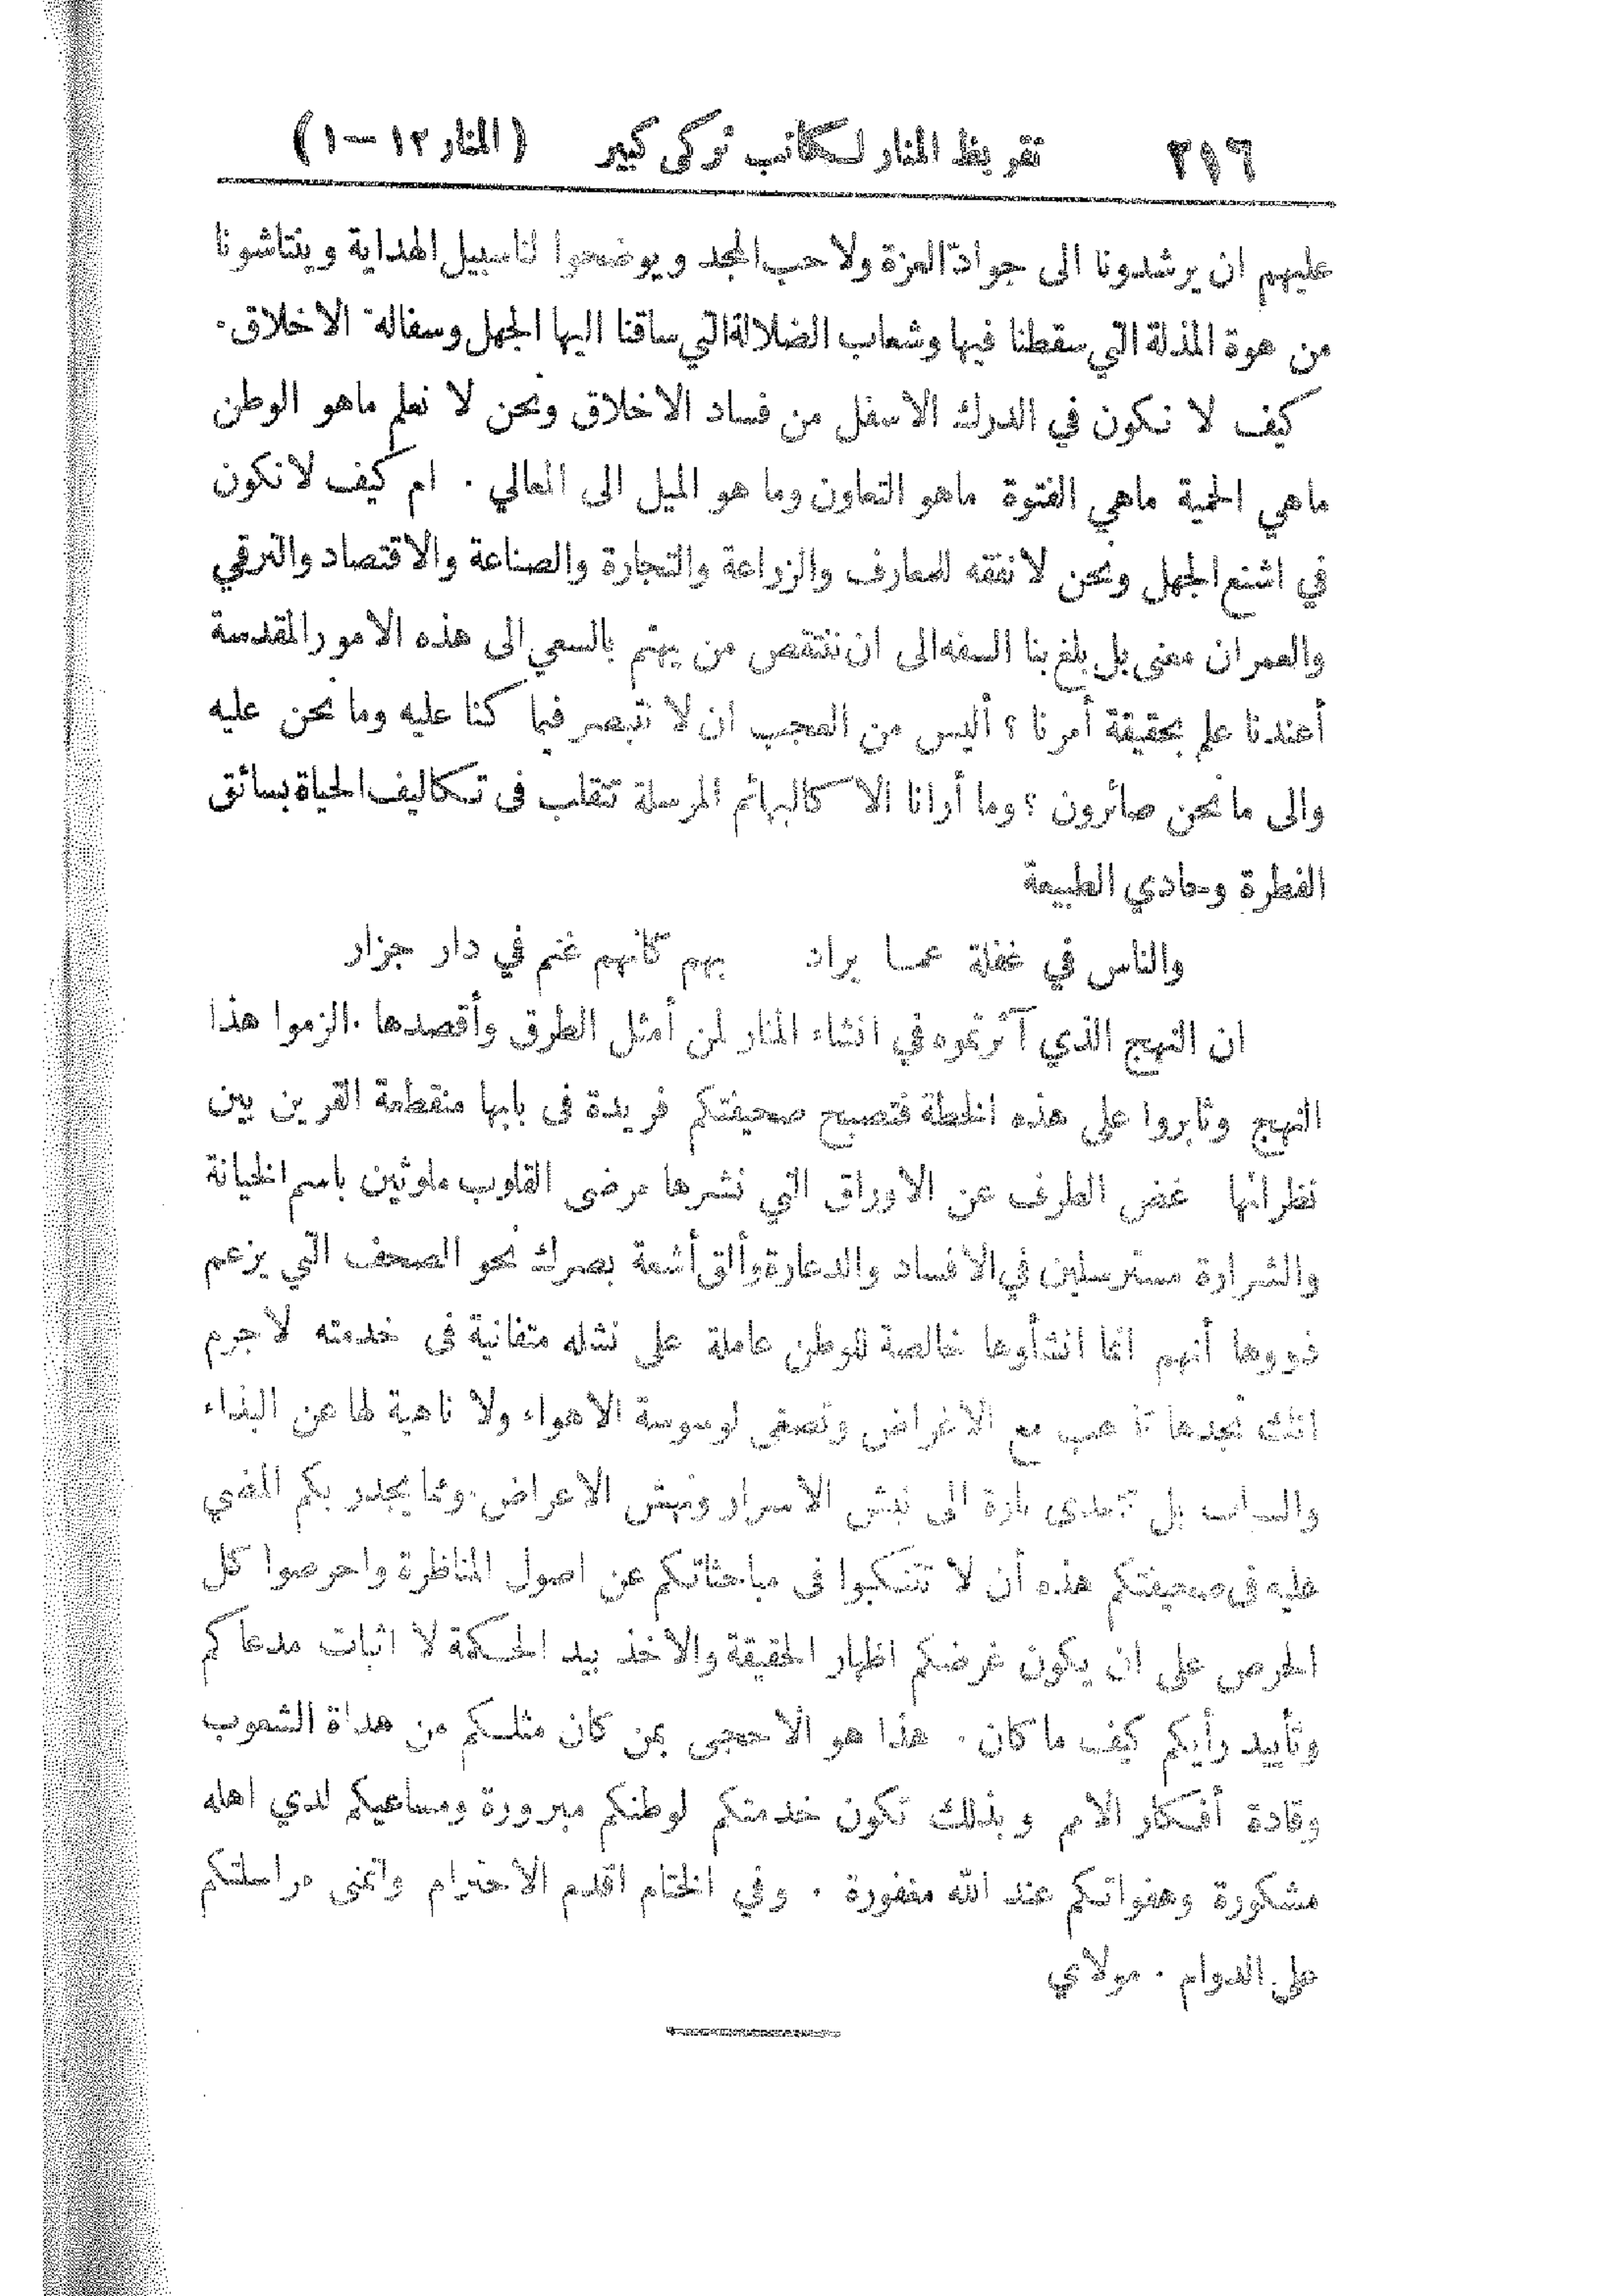 ٢١٦ تقريظ المنار لكاتب تركي كبير (المنار ١٢ – ١)
عليهم ان يرشدونا الى جوادّ العزة ولاحب المجد ويوضحوا لنا سبيل الهداية وينتاشونا
من هوة المذلة التي سقطنا فيها وشعاب الضلالة التي ساقنا اليها الجهل وسفالة الاخلاق.
كيف لا نكون في الدرك الاسفل من فساد الاخلاق ونحن لا نعلم ماهو الوطن
ماهي الحمية ماهي الفتوة ماهو التعاون وما هو الميل الى المعالي . ام كيف لا نكون
في اشنع الجهل ونحن لا نفقه للمعارف والزراعة والتجارة والصناعة والاقتصاد والترقي
والعمران معنى بل بلغ بنا السفه الى ان ننتقص من يهتم بالسعي الى هذه الامور المقدسة
أعندنا علم بحقيقة أمرنا ؟ أليس من العجب ان لا نتبصر فيما كنا عليه وما نحن عليه
والى ما نحن صائرون ؟ وما أرانا الا كالبهائم المرسلة تتقلب في تكاليف الحياة بسائق
الفطرة وحادي الطبيعة
والناس في غفلة عما يراد بهم كأنهم غنم في دار جزار
ان النهج الذي آثرتموه في انشاء المنار لمن أمثل الطرق وأقصدها . الزموا هذا
النهج وثابروا على هذه الخطة فتصبح صحيفتكم فريدة في بابها منقطعة القرين بين
نظرائها غض الطرف عن الاوراق التي نشرها مرضى القلوب ملوثين باسم الخيانة
والشرارة مسترسلين في الافساد والدعارة وألق أشعة بصرك نحو الصحف التي يزعم
ذووها أنهم انما انشأوها خالصة للوطن عاملة على نشله متفانية في خدمته لاجرم
انك تجدها تذهب مع الاغراض وتصغي لوسوسة الاهواء ولا ناهية لها عن البذاء
والسباب بل تتعدى تارة الى نبش الاسرار ونهش الاعراض . ومما يجدر بكم المضي
عليه في صحيفتكم هذه أن لا تتنكبوا في مباحثاتكم عن اصول المناظرة واحرصوا كل
الحرص على ان يكون غرضكم اظهار الحقيقة والاخذ بيد الحكمة لا اثبات مدعاكم
وتأييد رأيكم كيف ما كان . هذا هو الاحجى بمن كان مثلكم من هداة الشعوب
وقادة أفكار الامم وبذلك تكون خدمتكم لوطنكم مبرورة ومساعيكم لدي اهله
مشكورة وهفواتكم عند الله مغفورة . وفي الختام اقدم الاحترام واتمنى مراسلتكم
على الدوام . مولاي